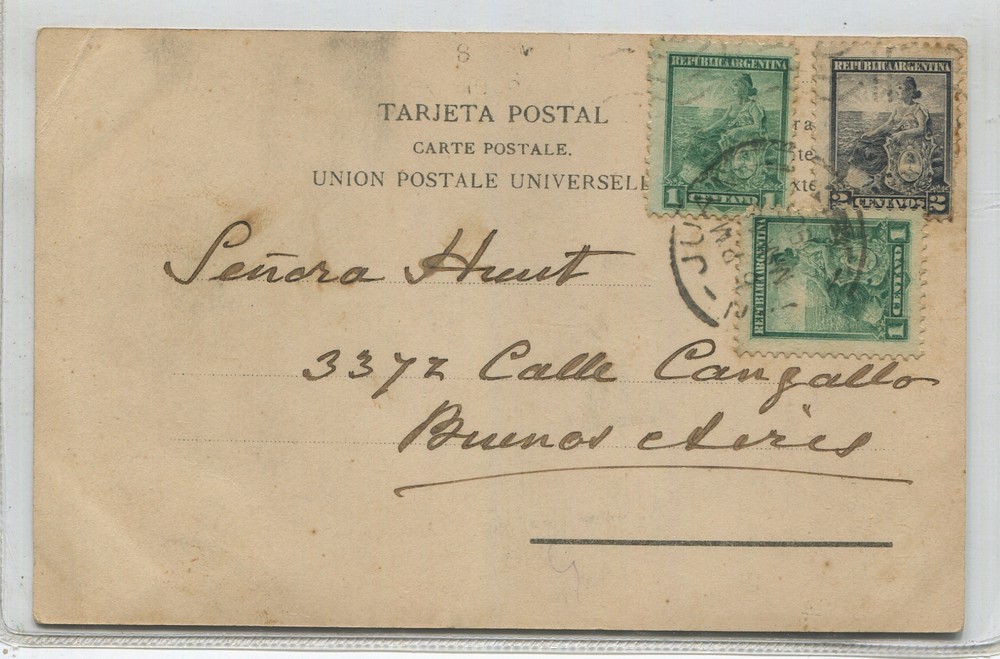 TARJETA POSTAL
CARTE POSTALE.
UNION POSTALE UNIVERSELL
REPUBLICA ARGENTINA
1 CENTAVO 1
REPUBLICA ARGENTINA
2 CENTAVOS 2
ra
te
xte
REPUBLICA ARGENTINA
1 CENTAVO 1
JU
Señora Hunt
3372 Calle Cangallo
Buenos Aires